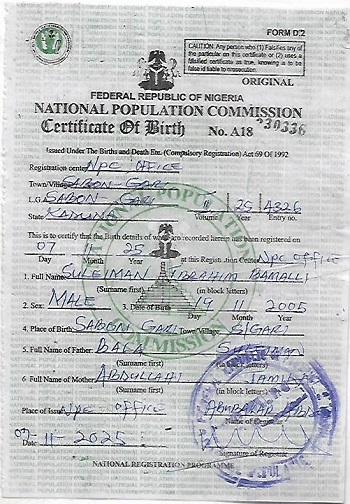 FORM D.2
CAUTION: Any person who (1) Falsifies any of the particular on this certificate or (2) uses a falsified certificate as true, knowing is to be false is liable to prosecution.
ORIGINAL
FEDERAL REPUBLIC OF NIGERIA
NATIONAL POPULATION COMMISSION
Certificate Of Birth No. A18 330336
Issued Under The Births and Death Etc. (Compulsory Registration) Act 69 Of 1992
Registration center NPC OFFICE
Town/Village SABON-GARI
L.G.A SABON-GARI II 25 4326
State KADUNA Volume Year Entry no.
This is to certify that the Birth details of which are recorded herein has been registered on
07 11 25 at this Registration Center NPC OFFICE
Day Month Year
1. Full Name SULEIMAN IBRAHIM BAMALLI
(Surname first) (in block letters)
2. Sex: MALE 3. Date of Birth 19 11 2005
Day Month Year
4. Place of Birth SABON GARI Town/Village S/GARI
5. Full Name of Father: BALA SULEIMAN
(Surname first) (in block letters)
6. Full Name of Mother: ABDULLAHI
(Surname first) (in block letters)
Place of Issue NPC OFFICE ABUBAKAR
Name of Registrar
Date 07-11-2025
Signature of Registrar
NATIONAL REGISTRATION PROGRAMME